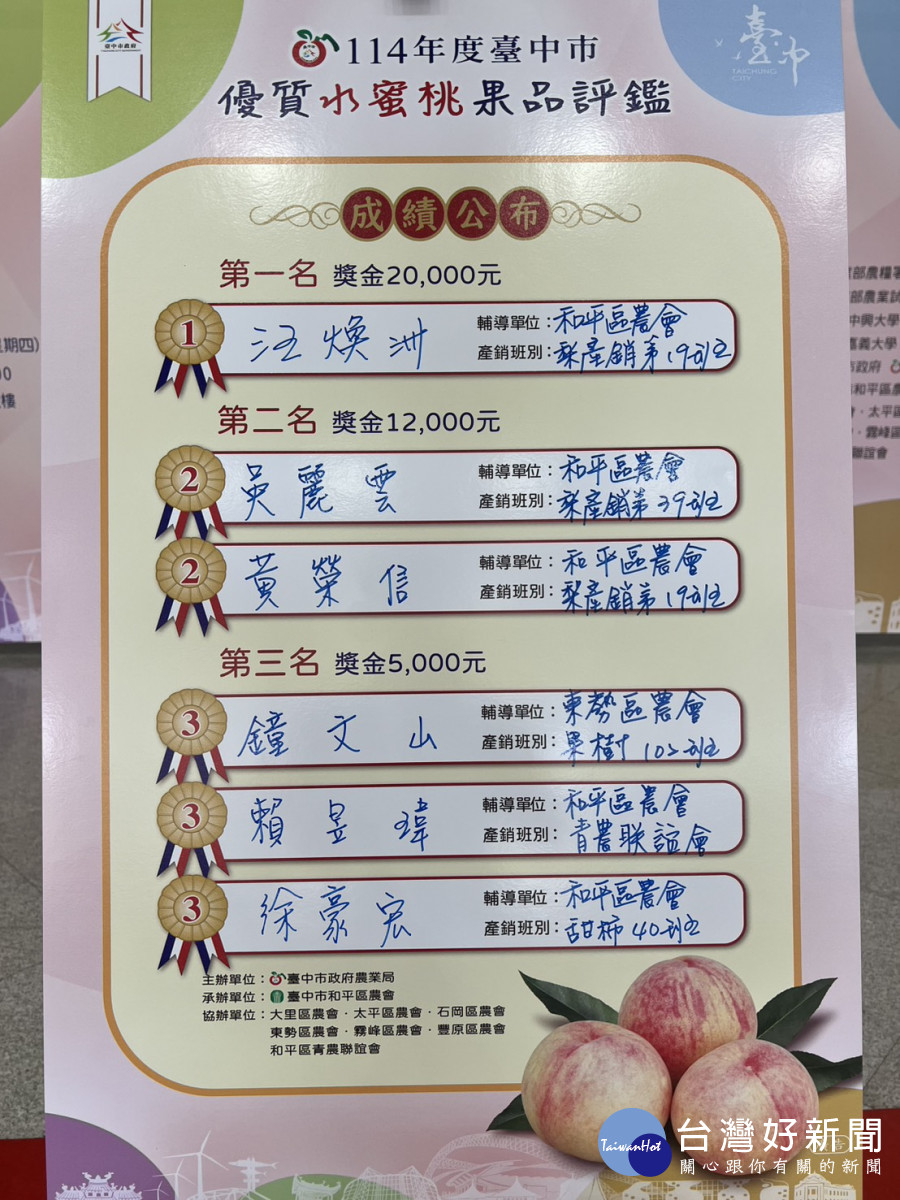 臺中市政府
臺中
TAICHUNG CITY
114年度臺中市
優質水蜜桃果品評鑑
成績公布
第一名 獎金20,000元
1 汪煥洲 輔導單位:和平區農會
產銷班別:梨產銷第19班
第二名 獎金12,000元
2 吳麗雲 輔導單位:和平區農會
產銷班別:梨產銷第39班
2 黃榮信 輔導單位:和平區農會
產銷班別:梨產銷第19班
第三名 獎金5,000元
3 鐘文山 輔導單位:東勢區農會
產銷班別:果樹102班
3 賴昱瑋 輔導單位:和平區農會
產銷班別:青農联誼會
3 徐豪宏 輔導單位:和平區農會
產銷班別:甜柿40班
主辦單位:臺中市政府農業局
承辦單位:臺中市和平區農會
協辦單位:大里區農會・太平區農會・石岡區農會
東勢區農會・霧峰區農會・豐原區農會
和平區青農聯誼會
期四)
00
樓
部農糧署
部農業試
中興大學
嘉義大學
市政府
和平區農
・太平區
・霧峰區
聯誼會
TaiwanHot
台灣好新聞
關心跟你有關的新聞